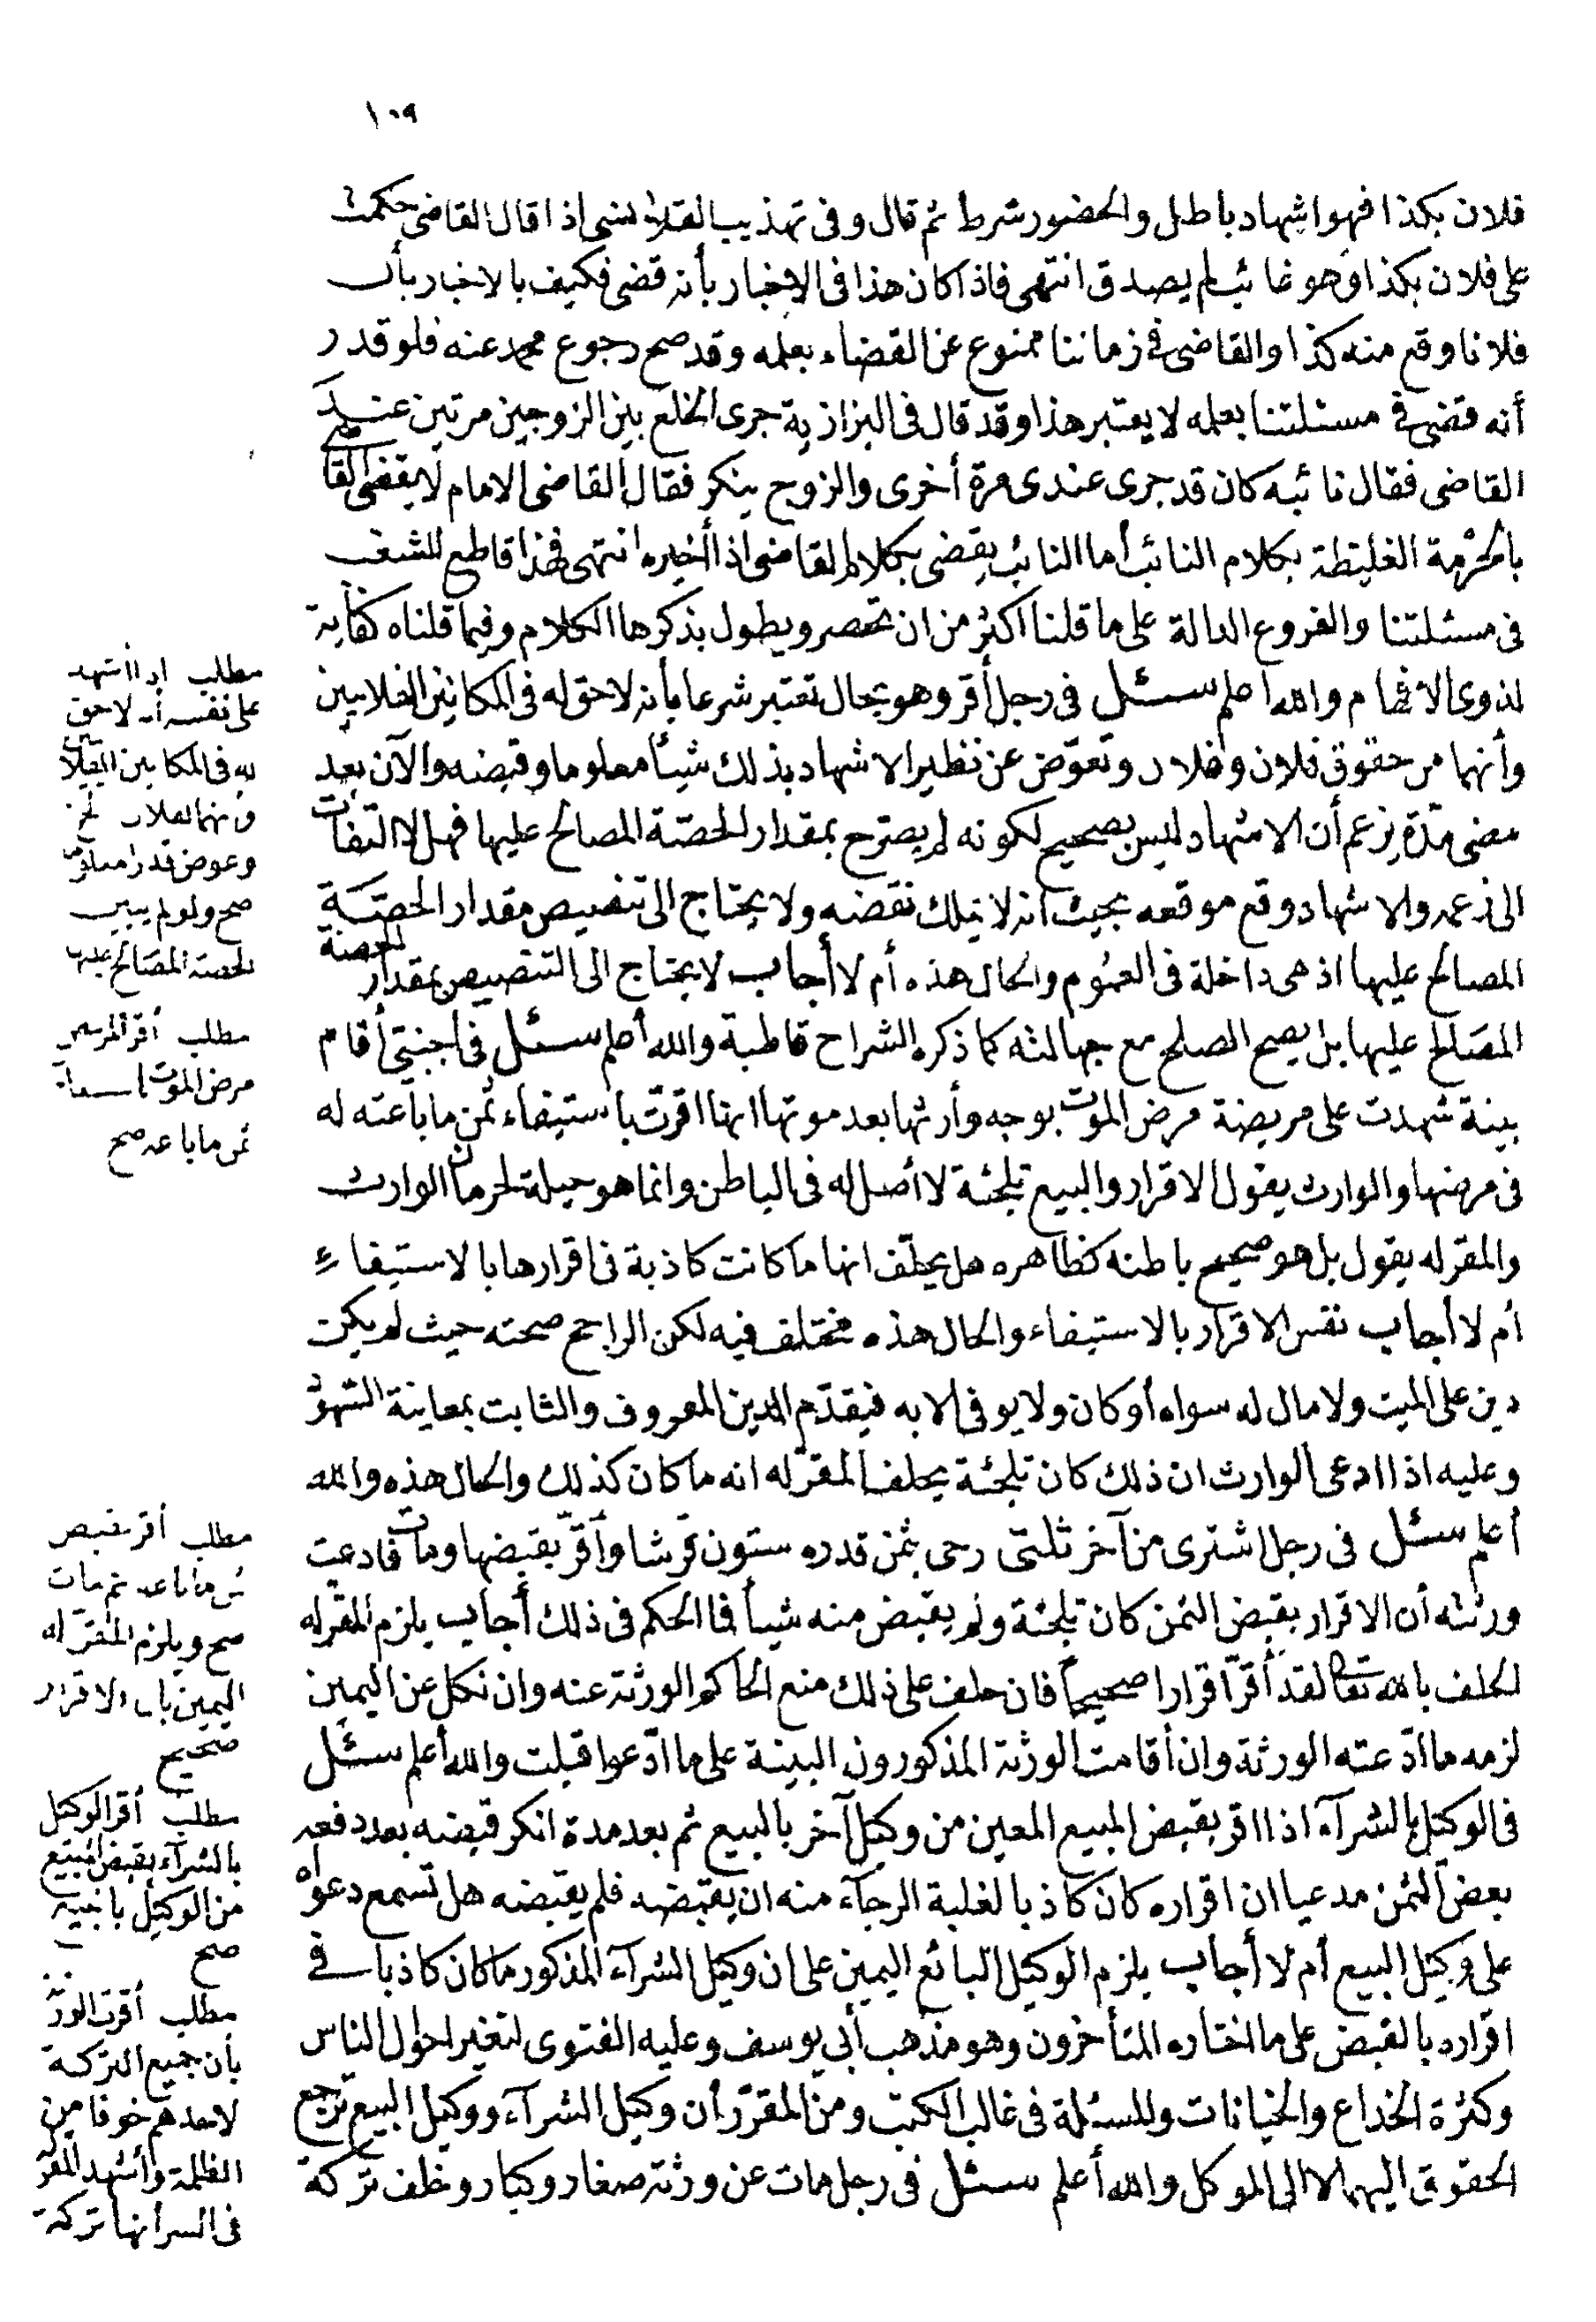 ١٠٩
فلان بكذا فهو اشهاد باطل والحضور شرط ثم قال وفى تهذيب القلانسى اذا قال القاضى حكمت
على فلان بكذا وهو غائب لم يصدق انتهى فاذا كان هذا فى الاخبار بأنه قضى فكيف بالاخبار بأن
فلانا وقع منه كذا والقاضى فى زماننا ممنوع عن القضاء بعلمه وقد صح رجوع محمد عنه فلو قدر
أنه قضى فى مسئلتنا بعلمه لا يعتبر هذا وقد قال فى البزازية جرى الخلع بين الزوجين مرتين عند
القاضى فقال نائبه كان قد جرى عندى مرة أخرى والزوج ينكر فقال القاضى الامام لا يقضى القاضى
بالحرمة الغليظة بكلام النائب أما النائب يقضى بكلام القاضى اذا أخبره انتهى فهذا قاطع للشغب
فى مسئلتنا والفروع الدالة على ما قلنا اكثر من ان تحصر ويطول بذكرها الكلام وفيما قلناه كفاية
لذوى الافهام والله اعلم سئل فى رجل أقر وهو بحال تعتبر شرعا بأنه لا حق له فى المكانين الفلانيين
وأنهما من حقوق فلان وفلان وتعوّض عن نظير الاشهاد بذلك شيأ معلوما وقبضه والآن بعد
مضى مدّة يزعم أن الاشهاد ليس بصحيح لكونه لم يصرّح بمقدار الحصّة المصالح عليها فهل لا التفات
الى زعمه والاشهاد وقع موقعه بحيث انه لا يملك نقضه ولا يحتاج الى تنصيص مقدار الحصّة
المصالح عليها اذ هى داخلة فى العموم والحال هذه أم لا أجاب لا يحتاج الى التنصيص بمقدار الحصة
المصالح عليها بل يصح الصلح مع جهالته كما ذكره الشراح قاطبة والله أعلم سئل فى اجنبيّ أقام
بينة شهدت على مريضة مرض الموت بوجه وارثها بعد موتها انها اقرّت باستيفاء ثمن ما باعته له
فى مرضها والوارث يقول الاقرار والبيع تلجئة لا أصل له فى الباطن وانما هو حيلة لحرمان الوارث
والمقر له يقول بل هو صحيح باطنه كظاهره هل يحلّف انها ما كانت كاذبة فى اقرارها بالاستيفاء
أم لا أجاب نفس الاقرار بالاستيفاء والحال هذه مختلف فيه لكن الراجح صحته حيث لم يكن
دين على الميت ولا مال له سواه أو كان ولا يوفى الا به فيقدّم الدين المعروف والثابت بمعاينة الشهود
وعليه اذا ادعى الوارث ان ذلك كان تلجئة يحلف المقرّ له انه ما كان كذلك والحال هذه والله
أعلم سئل فى رجل اشترى من آخر ثلثى رحى بثمن قدره ستون قرشا وأقرّ بقبضها ومات فادعت
ورثته أن الاقرار بقبض الثمن كان تلجئة ولم يقبض منه شيأ فما الحكم فى ذلك أجاب يلزم المقرّ له
الحلف بالله تعالى لقد أقرّ اقرارا صحيحا فان حلف على ذلك منع الحاكم الورثة عنه وان نكل عن اليمين
لزمه ما ادّعته الورثة وان أقامت الورثة المذكورون البينة على ما ادّعوا قبلت والله أعلم سئل
فى الوكيل بالشرآء اذا اقر بقبض المبيع المعين من وكيل آخر بالبيع ثم بعد مدة انكر قبضه بعد دفعه
بعض الثمن مدعيا ان اقراره كان كاذبا لغلبة الرجآء منه ان يقبضه فلم يقبضه هل تسمع دعواه
على وكيل البيع أم لا أجاب يلزم الوكيل البائع اليمين على ان وكيل الشرآء المذكور ما كان كاذبا فى
اقراره بالقبض على ما اختاره المتأخرون وهو مذهب أبى يوسف وعليه الفتوى لتغير احوال الناس
وكثرة الخداع والخيانات والمسئلة فى غالب الكتب ومن المقرّر أن وكيل الشرآء ووكيل البيع ترجع
الحقوق اليهما لا الى الموكل والله أعلم سئل فى رجل مات عن ورثة صغار وكبار وخلف تركة
مطلب اذا اشهد
على نفسه أنه لا حق
له فى المكانين الفلانيين
وأنهما لفلان
وعوض قدرا معلوما
صح ولو لم يبين
الحصة المصالح عليها
مطلب أقر المريض
مرض الموت باستيفاء
ثمن ما باعه صح
مطلب أقر بقبض
ثمن ما باعه ثم مات
صح ويلزم المقرّ له
اليمين بان الاقرار
صحيح
مطلب أقر الوكيل
بالشرآء بقبض المبيع
من الوكيل بالبيع
صح
مطلب أقرت الورثة
بأن جميع التركة
لاحدهم خوفا من
الظلمة وأشهد المقر له
فى السر أنها تركة